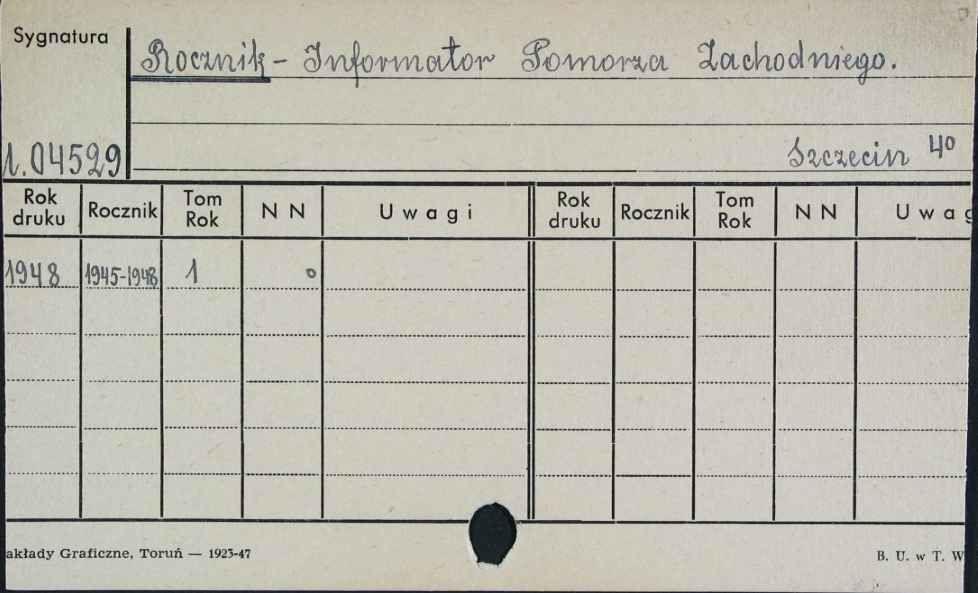 Sygnatura
Rocznik - Informator Pomorza Zachodniego.
1.04529
Szczecin 4º
Rok druku Rocznik Tom Rok N N Uwagi Rok druku Rocznik Tom Rok N N Uwag
1948 1945-1948 1 0
akłady Graficzne, Toruń — 1923-47
B. U. w T. W